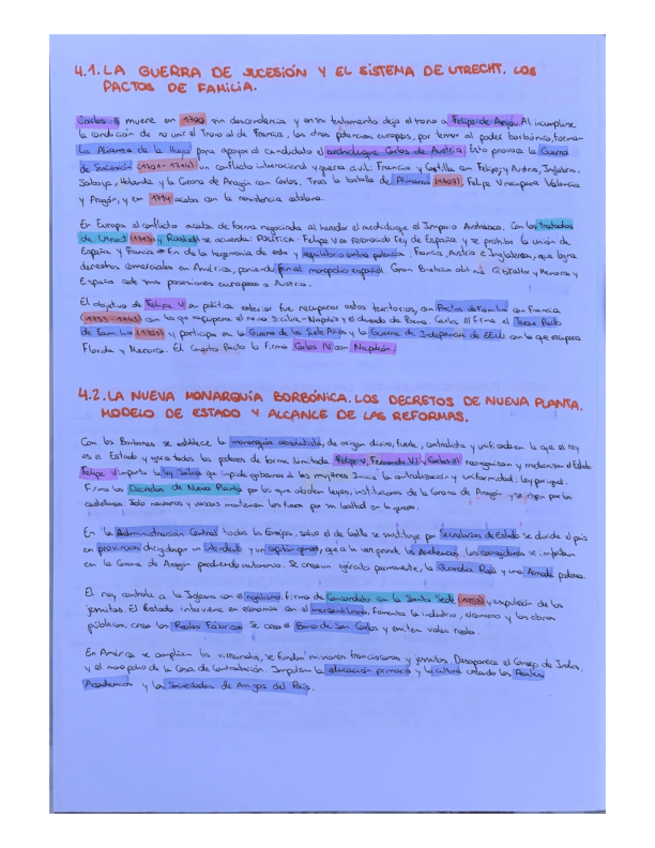 4.1. LA GUERRA DE SUCESIÓN Y EL SISTEMA DE UTRECHT. LOS
PACTOS DE FAMILIA.
Carlos II muere en 1700 sin descendencia y en su testamento deja el trono a Felipe de Anjou. Al incumplirse
la condición de no unir el Trono al de Francia, las otras potencias europeas, por temor al poder borbónico, forman
La Alianza de la Haya para apoyar al candidato el archiduque Carlos de Austria. Esto provoca la Guerra
de Sucesión (1701-1714) un conflicto internacional y guerra civil: Francia y Castilla con Felipe; y Austria, Inglaterra,
Saboya, Holanda y la Corona de Aragón con Carlos. Tras la batalla de Almansa (1707), Felipe V recupera Valencia
y Aragón, y en 1714 acaba con la resistencia catalana.
En Europa el conflicto acaba de forma negociada al heredar el archiduque el Imperio Austriaco. Con los tratados
de Utrecht (1713) y Rastadt se acuerda: POLÍTICA: Felipe V es reconocido Rey de España y se prohíbe la unión de
España y Francia → fin de la hegemonía de esta y equilibrio entre potencias: Francia, Austria e Inglaterra, que logra
derechos comerciales en América, poniendo fin al monopolio español. Gran Bretaña obtiene Gibraltar y Menorca y
España cede sus posesiones europeas a Austria.
El objetivo de Felipe V en política exterior fue recuperar estos territorios, con Pactos de Familia con Francia
(1733-1743) con los que recupera el reino Sicilia-Nápoles y el ducado de Parma. Carlos III firma el Tercer Pacto
de Familia y participa en la Guerra de los Siete Años y la Guerra de Independencia de EEUU con la que recupera
Florida y Menorca. El Cuarto Pacto lo firma Carlos IV con Napoleón.
4.2. LA NUEVA MONARQUÍA BORBÓNICA. LOS DECRETOS DE NUEVA PLANTA.
MODELO DE ESTADO Y ALCANCE DE LAS REFORMAS.
Con los Borbones se establece la monarquía absolutista, de origen divino, fuerte, centralista y unificada en la que el rey
es el Estado y ejerce todos los poderes de forma ilimitada. Felipe V, Fernando VI y Carlos III reorganizan y modernizan el Estado.
Felipe V importa la ley Sálica que impide gobernar a las mujeres. Inicia la centralización y uniformidad: ley por igual.
Firma los Decretos de Nueva Planta por los que abolen leyes, instituciones de la Corona de Aragón y se rigen por las
castellanas. Solo navarros y vascos mantienen los fueros por su lealtad en la guerra.
En la Administración Central todos los Consejos, salvo el de Castilla se sustituye por Secretarías de Estado. Se divide el país
en provincias dirigidas por un intendente y un capitán general, que a la vez preside las Audiencias. Los corregidores se implantan
en la Corona de Aragón perdiendo autonomía. Se crea un ejército permanente, la Guardia Real y una Armada potente.
El rey controla a la Iglesia con el regalismo: firma de Concordato con la Santa Sede (1753) y expulsión de los
jesuitas. El Estado interviene en economía con el mercantilismo, fomenta la industria, el comercio y las obras
públicas, crea las Reales Fábricas. Se crea el Banco de San Carlos y emiten vales reales.
En América se amplían los virreinatos, se fundan misiones franciscanas y jesuitas. Desaparece el Consejo de Indias,
y el monopolio de la Casa de Contratación. Impulsan la educación primaria y la cultura creando las Reales
Academias y las Sociedades de Amigos del País.